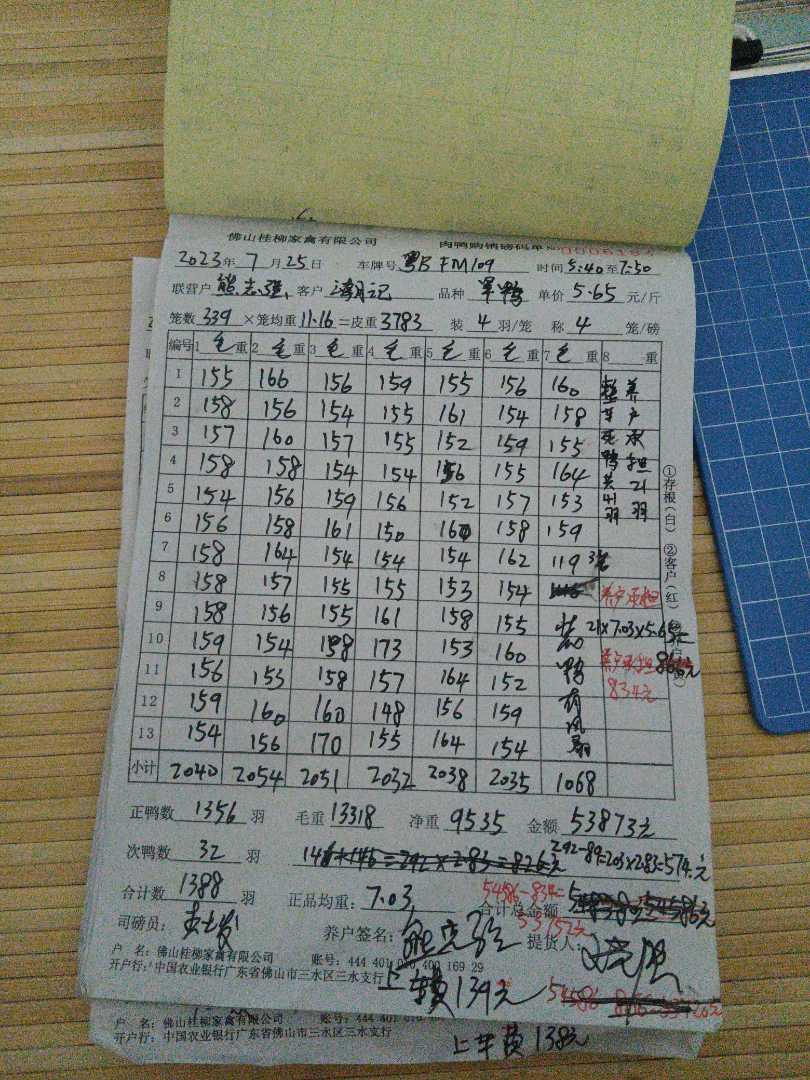 佛山桂柳家禽有限公司 肉鸭购销磅码单
2023年 7月 25日 车牌号 粤B FM109 时间 5:40至7:50
联营户 熊志强 客户 潮记 品种 单价 5.65 元/斤
笼数 339 ×笼均重 11.16 =皮重 3783 装 4 羽/笼 称 4 笼/磅
编号 1 毛重 2 毛重 3 毛重 4 毛重 5 毛重 6 毛重 7 毛重 8 重
1 155 166 156 159 155 156 160 整 养
2 158 156 154 155 161 154 158 车 户
3 157 160 157 155 152 159 155 死 承
4 158 158 154 154 156 155 164 鸭 担
5 154 156 159 156 152 157 153 共 21
6 156 158 161 150 160 158 159 41 羽
羽
7 158 164 154 154 154 162 119 3笼
8 158 157 155 155 153 154 养户承担
9 158 156 155 161 158 155 装 21×7.03×5.65=
10 159 154 158 173 153 160 养户承担
11 156 153 158 157 164 152 鸭 834元
12 159 160 160 148 156 159 有
13 154 156 170 155 164 154 风扇
小计 2040 2054 2051 2032 2038 2035 1068
①存根(白) ②客户(红)
正鸭数 1356 羽 毛重 13318 净重 9535 金额 53873元
次鸭数 32 羽 146+146=292×2.83=826元 292-89=203×2.83=574.元
合计数 1388 羽 正品均重: 7.03 54586-834= 合计总金额 54586元
53752元
司磅员: 养户签名: 熊志强 提货人:
户 名: 佛山桂柳家禽有限公司 账号: 444 401 040 400 169 29
开户行: 中国农业银行广东省佛山市三水区三水支行
上车费139元 54586
户 名: 佛山桂柳家禽有限公司 账号: 444 401
开户行: 中国农业银行广东省佛山市三水区三水支行
上车费138元